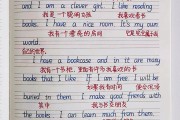 and I am a clever girl. I like reading
我是一个聪明女孩 我喜欢看书
books. I have a nice room. It's my own
我有个漂亮的房间
world.
己的世界.
I have a bookcase and in it are many
我有个书柜,里面有
books that I like. If I am free, I will be
buried in them. I make good friends with
其中
the books. I can learn much from them.